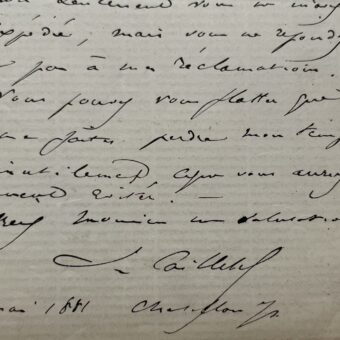 seulement vous ne m'avez
expédié, mais vous ne répondez
pas à mes réclamations.
Vous pouvez vous flatter que
me faites perdre mon temps
inutilement ce que vous auriez
évité. —
Monsieur mes salutations
L Cailletet
mai 1881 Chatillon s/s